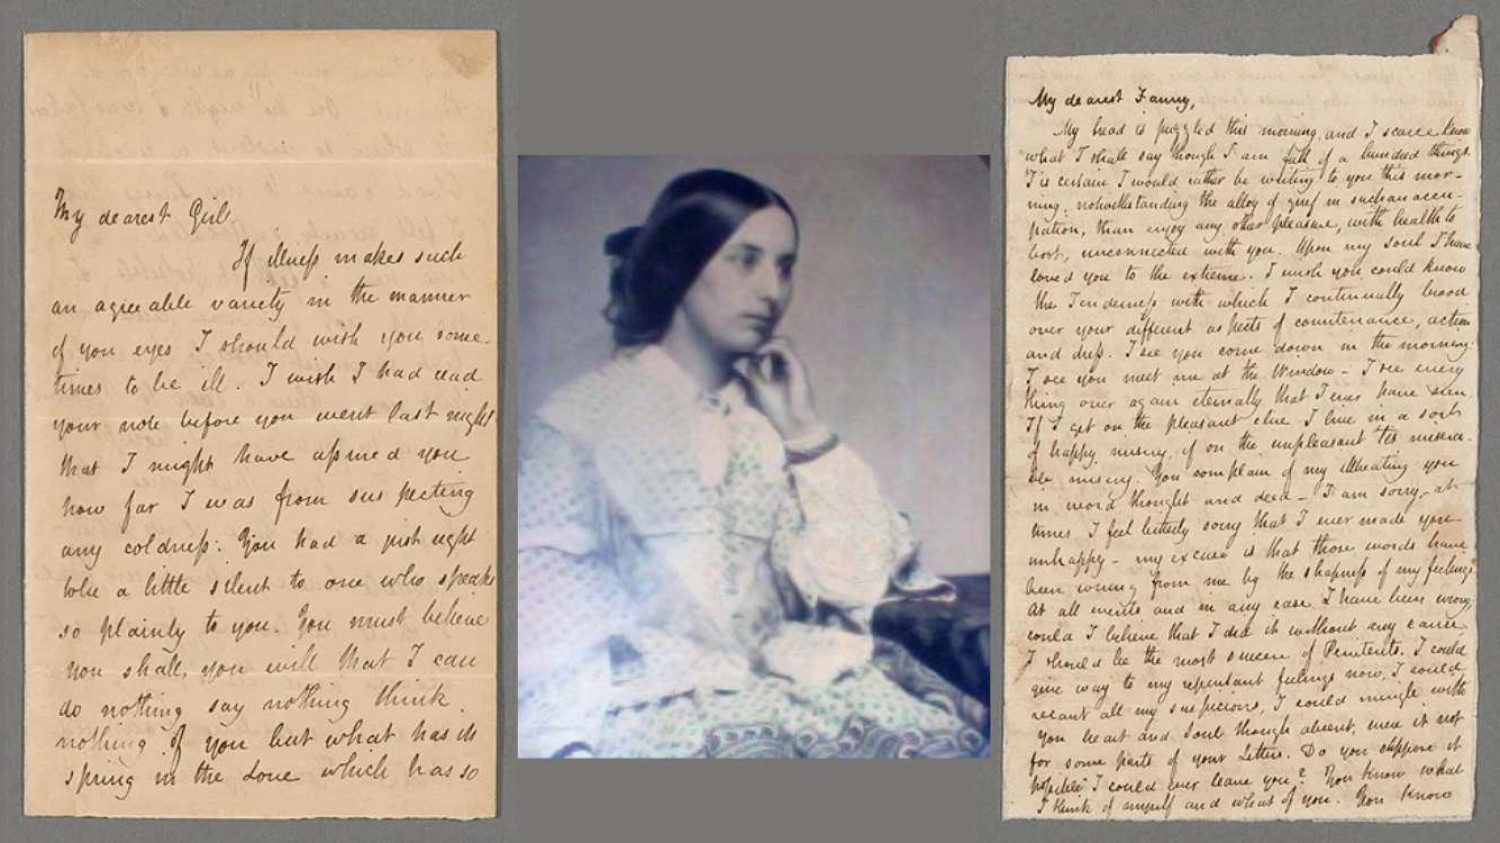 My dearest Girl,
If illness makes such
an agreeable variety in the manner
of you eyes I should wish you some-
times to be ill. I wish I had read
your note before you went last night
that I might have assured you
how far I was from suspecting
any coldness: You had a just right
to be a little silent to one who speaks
so plainly to you. You must believe
you shall, you will that I can
do nothing say nothing think
nothing of you but what has its
spring in the Love which has so
My dearest Fanny,
My head is puzzled this morning, and I scarce know
what I shall say though I am full of a hundred things.
'T is certain I would rather be writing to you this mor-
ning, notwithstanding the alloy of grief in such an occu-
pation, than enjoy any other pleasure, with health to
boot, unconnected with you. Upon my soul I have
loved you to the extreme. I wish you could know
the Tenderness with which I continually brood
over your different aspects of countenance, action
and dress. I see you come down in the morning:
I see you meet me at the Window - I see every
thing over again eternally that I ever have seen.
If I get on the pleasant clue I live in a sort
of happy misery, if on the unpleasant 'tis misera-
ble misery. You complain of my illtreating you
in word thought and deed - I am sorry, - at
times I feel bitterly sorry that I ever made you
unhappy - my excuse is that those words have
been wrung from me by the sharpness of my feelings.
At all events and in any case I have been wrong;
could I believe that I did it without any cause,
I should be the most sincere of Penitents. I could
give way to my repentant feelings now, I could
recant all my suspicions, I could mingle with
you heart and Soul though absent, were it not
for some parts of your Letters. Do you suppose it
possible I could ever leave you? You know what
I think of myself and what of you. You know